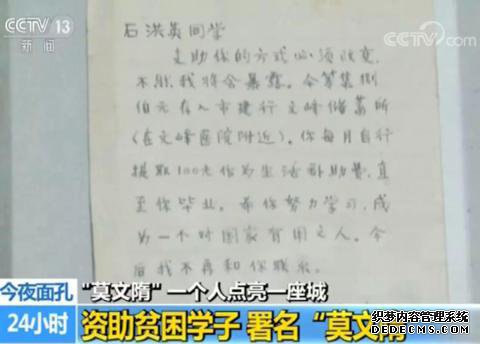 CCTV 13
新闻
CCTV.com
石洪英同学
支助你的方式必须改变,
不然我将会暴露。今筹集捌
佰元存入市建行文峰储蓄所
(在文峰医院附近)。你每月自行
提取100元作为生活补助费,直
至你毕业。希你努力学习,成
为一个对国家有用之人。今
后我不再和你联系。
今夜面孔
“莫文隋”一个人点亮一座城
24小时
资助贫困学子 署名“莫文隋”